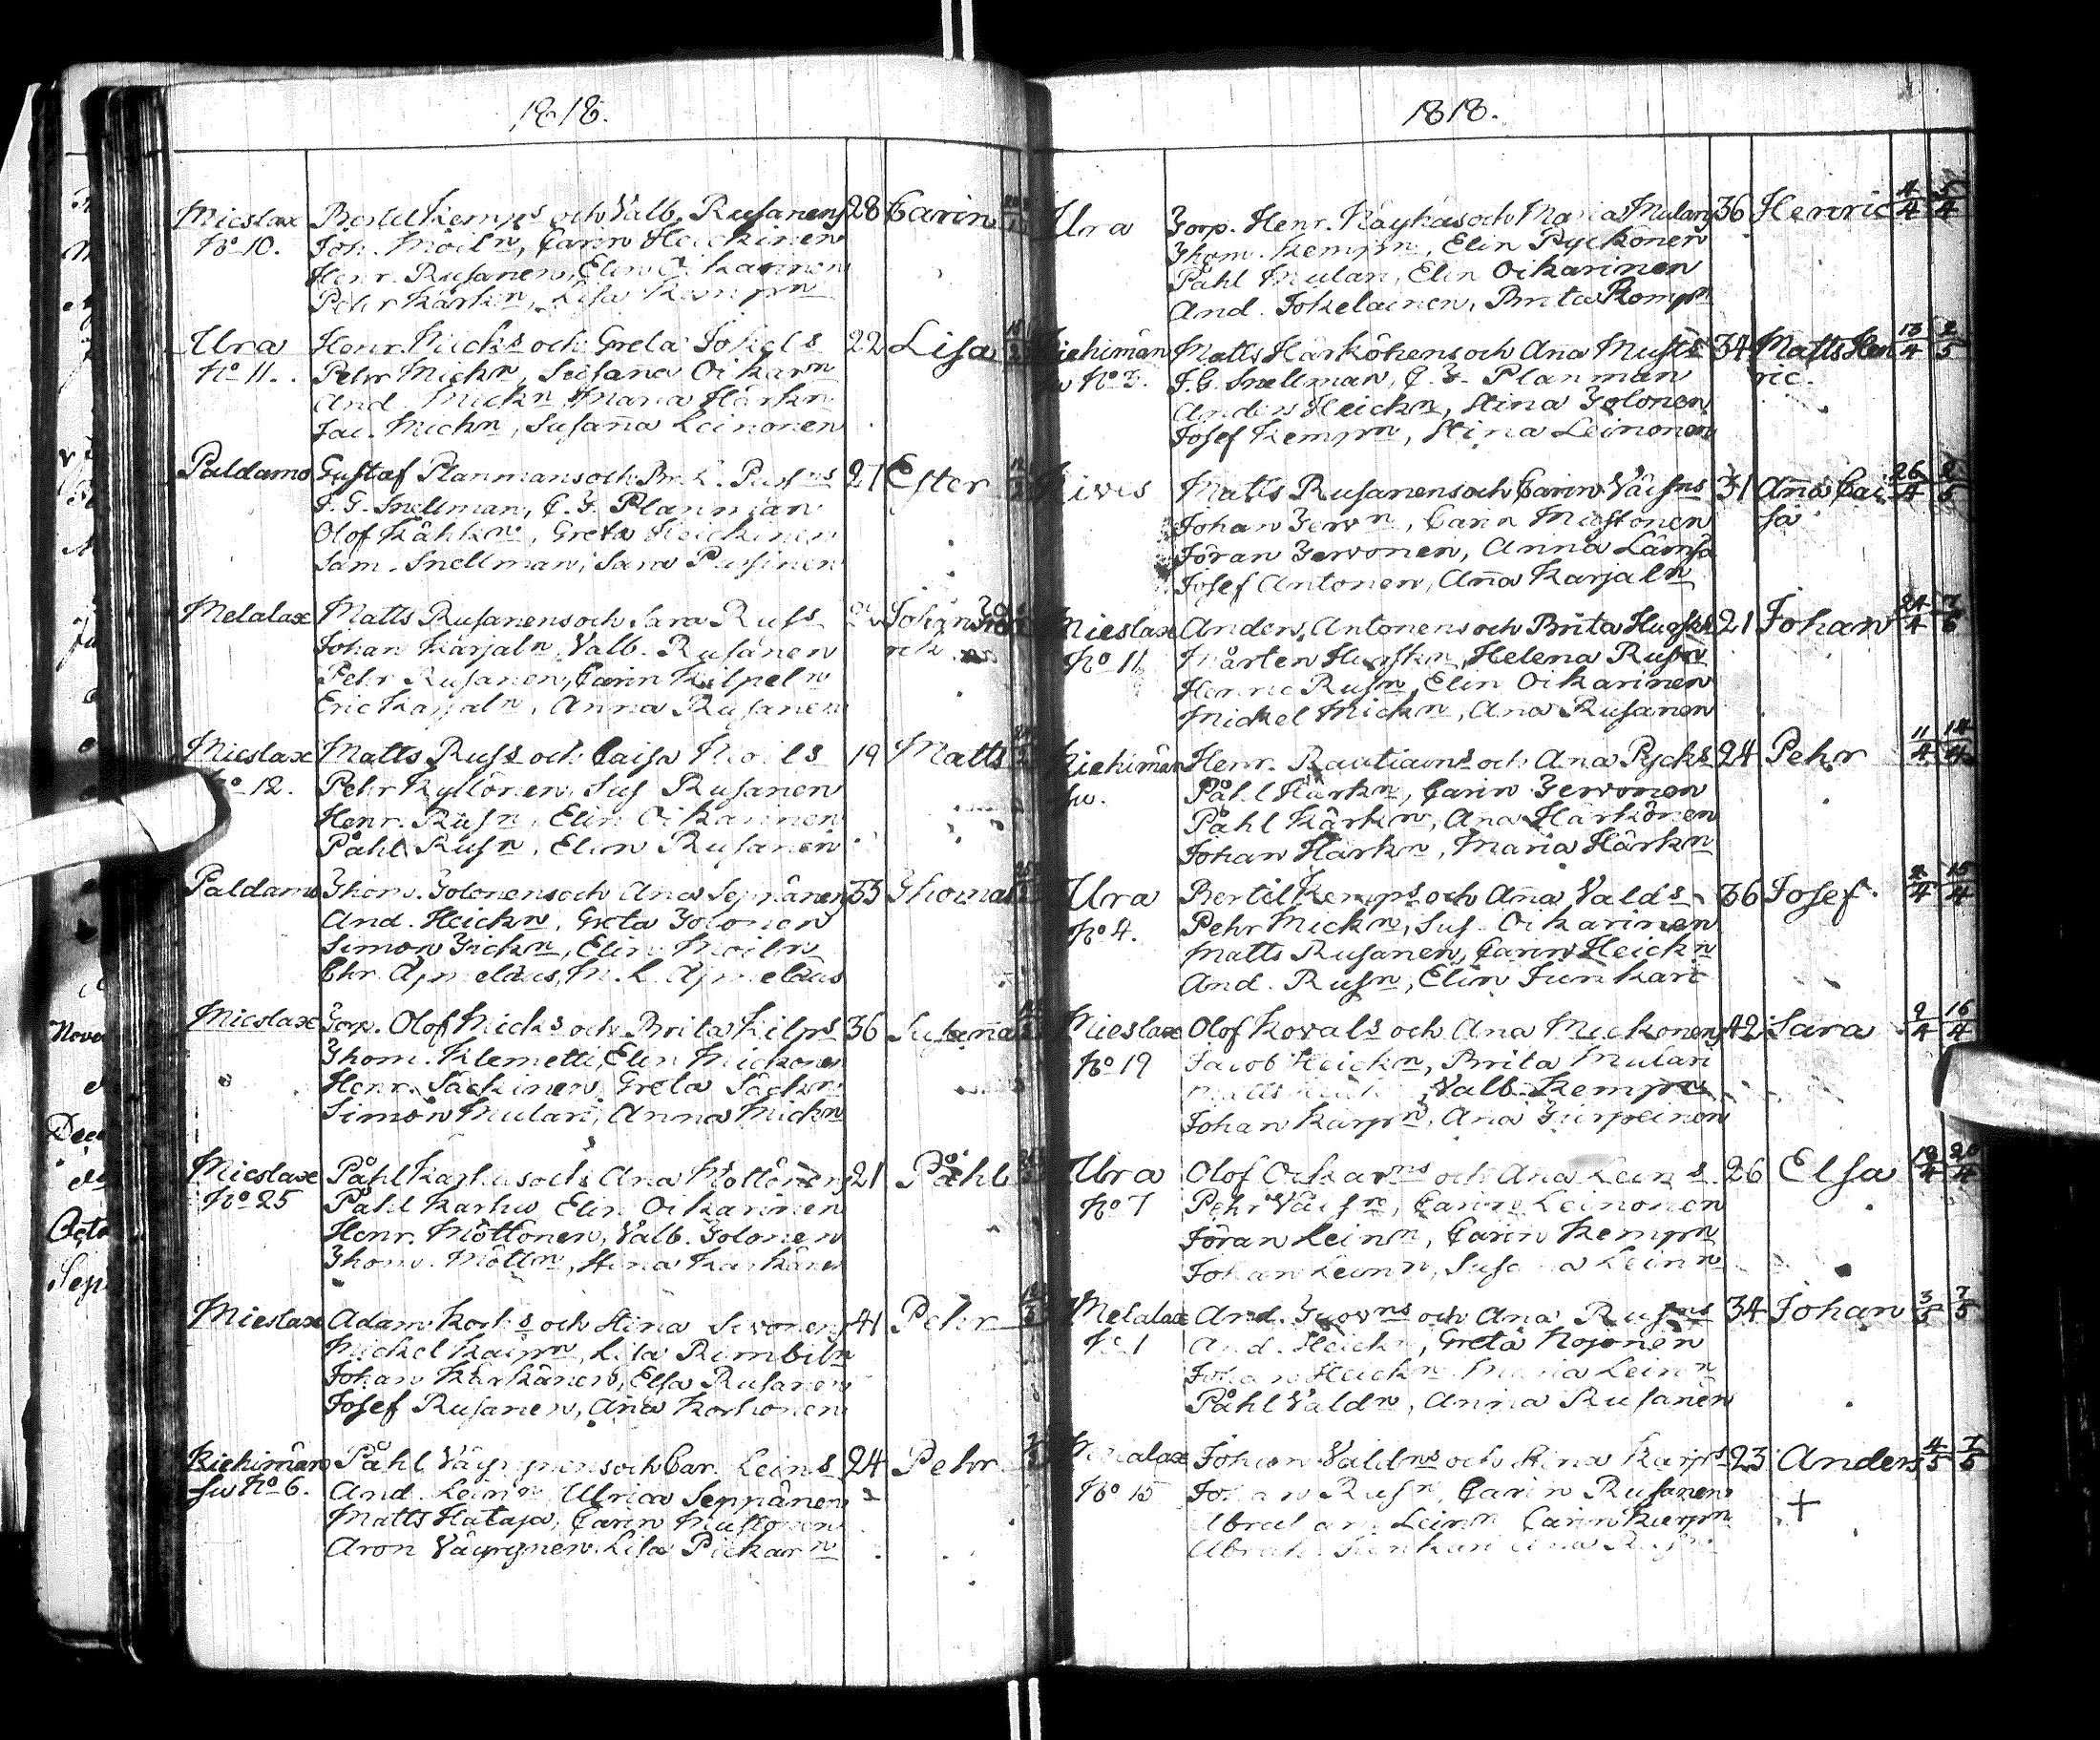 1818.
Mieslax Bertil Kemps och Valb. Rusanens 28 Carin
No 10. Joh. Moiln, Carin Heickinen
Henr. Rusanen, Elin Oikarinen
Pehr Kärkn, Lisa Kempn
Ura Henr. Micks och Greta Jokels 22 Lisa
No 11. Pehr Mickn, Susana Oikarn
And. Mickn, Maria Härkn
Jac. Mickn, Susanna Leinonen
Paldamo Gustaf Planmans och Br. L. 21 Ester
J. G. Snellman, C. J. Planman
Olof Kähkn, Greta Heickinen
Sam. Snellman, Sara
Melalax Matts Rusanens och Sara Russ Johan
Johan Karjaln, Valb. Rusanen rick
Pehr Rusanen, Carin Kilpeln
Eric Karjaln, Anna Rusanen
Mieslax Matts Russ och Caisa Moils 19 Matts
No 12. Pehr Kyllönen, Sus Rusanen
Henr. Rusn, Elin Oikarinen
Påhl Rusn, Elin Rusanen
Paldamo Thom. Tolonens och Ana Seppänen 33 Thomas
And. Heickn, Greta Tolonen
Simon Tickn, Elin Moiln
Chr. Apmelæus, M. L. Apmelæus
Mieslax Torp. Olof Micks och Brita Kilps 36 Susanna
Thom. Klemetti, Elin Mickonen
Henr. Säckinen, Greta Säckn
Simon Mulari, Anna Mickn
Mieslax Påhl Karhus och Ana Möttönens 21 Påhl
No 25 Påhl Karhu Elin Oikarinen
Henr. Möttönen, Valb. Tolonen
Thom. Möttn, Stina Karkänen
Mieslax Adam Korhs och Stina Sivonens 41 Pehr
Mickel Karpn, Lisa Rimbiln
Johan Karkänen, Elsa Rusanen
Josef Rusanen, Ana Korhonen
Riehimän Påhl Väyrynens och Car. Leins 24 Pehr
su No 6. And. Leinn, Ulrica Seppänen
Matts Hataja, Carin Mustonen
Aron Väyrynen, Lisa Pickarn
1818.
Ura Torp. Henr. Räyhäs och Maria Mularis 36 Henric 4/4 5/4
Thom. Kempn, Elin Pyckönen
Påhl Mulari, Elin Oikarinen
And. Jokelainen, Brita Kempn
Riehimän Matts Härkönens och Ana Musts 34 Matts Hen 13/4 2/5
su No 3. J. G. Snellman, C. J. Planman ric.
Anders Heickn, Stina Tolonen
Josef Kempn, Stina Leinonen
Kives Matts Rusanens och Carin Väisns 31 Anna Cai 26/4
Johan Tervn, Carin Mustonen sa
Jöran Tervonen, Anna Lämsä
Josef Antonen, Anna Karjaln
Mieslax Anders Antonens och Brita Husks 21 Johan 24/4
No 11 Mårten Huskn, Helena Rusn
Henric Rusn, Elin Oikarinen
Mickel Mickn, Ana Rusanen
Riehimän Henr. Rautiains och Ana Pycks 24 Pehr 11/4 14/4
su. Påhl Härkn, Carin Tervonen
Påhl Kärkn, Ana Härkönen
Johan Härkn, Maria Härkn
Ura Bertil Kemps och Anna Valds 36 Josef 15/4
No 4. Pehr Mickn, Sus. Oikarinen
Matts Rusanen, Carin Heickn
And. Rusn, Elin Junkari
Mieslax Olof Kovals och Ana Mickonens 42 Sara 9/4 16/4
No 19 Jacob Heickn, Brita Mulari
Matts Valb. Kempn
Johan Karpn, Ana Turpeinen
Ura Olof Oikarns och Ana Leins 26 Elsa 19/4 20/4
No 7 Pehr Väisn, Carin Leinonen
Jöran Leinn, Carin Kempn
Johan Leinn, Susana Leinn
Melalax And. Tuovns och Ana Rusns 34 Johan 3/5 7/5
No 1 And. Heickn, Greta Nojonen
Johan Heickn Maria Leinn
Påhl Valdn, Anna Rusanen
Melalax Johan Valdns och Stina Karps 23 Anders 4/5 7/5
No 15 Johan Rusn, Carin Rusanen +
Abraham Leinn Carin Karpn
Abrah. Junkari Ana Rusn